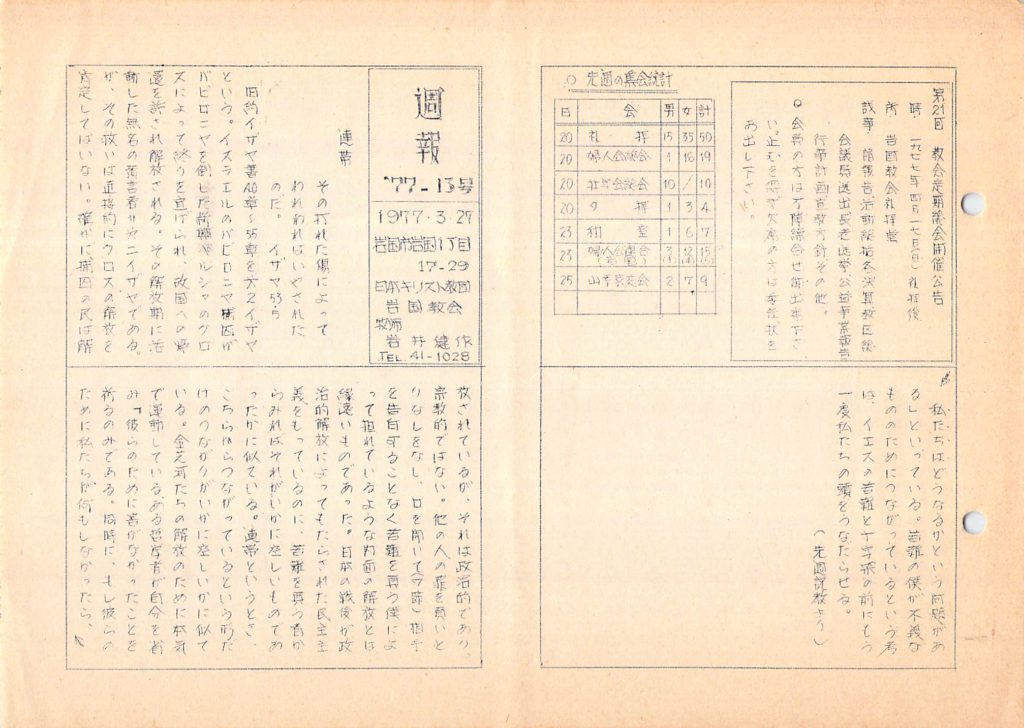 週報
'77-13号
1977・3・27
岩国市岩国1丁目
17-29
日本キリスト教団
岩国教会
牧師
岩井健作
TEL. 41-1028
連帯
その打れた傷によって
われわれはいやされた
のだ。 イザヤ53:5
旧約イザヤ書40章〜55章を第2イザヤ
という。イスラエルのバビロニヤ捕囚が
バビロニヤを倒した新興ペルシャのクロ
スによって終りを宣げられ、故国への帰
還を許され解放される。その解放期に活
動した無名の預言者が第二イザヤである。
が、その救いは直接的にクロスの解放を
肯定してはいない。確かに捕囚の民は解
放されているが、それは政治的であり、
宗教的ではない。他の人の罪を負いと
りなしをなし、口を開いて(7節)相手
を告白することなく苦難を負う僕によ
って担れているような内面の解放とは
縁遠いものであった。日本の戦後が政
治的解放によってもたらされた民主主
義をもっているのに、苦難を負う者か
らみればそれがいかに空しいものであ
ったかに似ている。連帯というとき、
こちらからつながっているという形だ
けのつながりがいかに空しいかに似て
いる。金芝河たちの解放のために本気
で運動しているある哲学者が自分を省
み「彼らのために害がなかったことを
祈るのみである。同時に、もし彼らの
ために私たちが何もしなかったら、
私たちはどうなるかという問題があ
る」といっている。苦難の僕が不義な
もののためにつながっているという考
は、イエスの苦難と十字架の前にもう
一度私たちの頭をうなだらせる。
(先週説教より)
第21回 教会定期総会開催公告
時 一九七七年四月一七日(日)礼拝後
所 岩国教会礼拝堂
議事 諸報告活動総括各決算教区総
会議員選出長老選挙公益事業報告
行事計画宣教方針その他。
○会員の方は万障繰合せ御出席下さ
い。止むを得ず欠席の方は委任状を
お出し下さい。
○ 先週の集会統計
日 会 男 女 計
20 礼拝 15 35 50
20 婦人会総会 1 18 19
20 壮年会総会 10 / 10
20 夕拝 1 3 4
23 祈祷 1 6 7
23 婦人会連合 3 12 15
25 家庭会 2 7 9